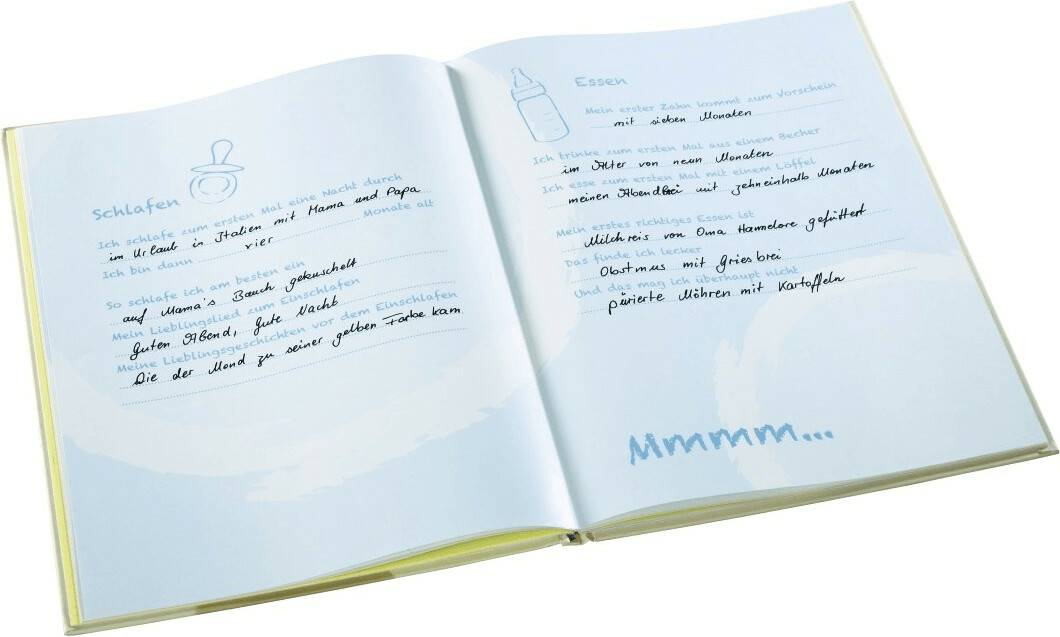 Schlafen
Ich schlafe zum ersten Mal eine Nacht durch
im Urlaub in Italien mit Mama und Papa
Ich bin dann vier Monate alt
So schlafe ich am besten ein
auf Mama's Bauch gekuschelt
Mein Lieblingslied zum Einschlafen
Guten Abend, gute Nacht
Meine Lieblingsgeschichten vor dem Einschlafen
Die der Mond zu seiner gelben Farbe kam
Essen
Mein erster Zahn kommt zum Vorschein
mit sieben Monaten
Ich trinke zum ersten Mal aus einem Becher
im Alter von neun Monaten
Ich esse zum ersten Mal mit einem Löffel
meinen Abendbrei mit zehneinhalb Monaten
Mein erstes richtiges Essen ist
Milchreis von Oma Hannelore gefüttert
Das finde ich lecker
Obstmus mit Griesbrei
Und das mag ich überhaupt nicht
pürierte Möhren mit Kartoffeln
Mmmmm...